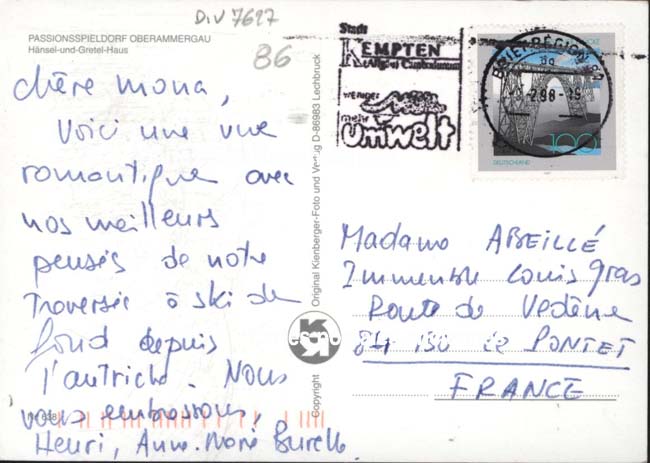 DIV 7627
PASSIONSSPIELDORF OBERAMMERGAU
Hänsel-und-Gretel-Haus
86
Chère Mona,
Voici une vue
romantique avec
nos meilleurs
pensés de notre
Traversée à ski de
fond depuis
l'autriche. Nous
vous embrassons,
Henri, Anne-Marie Burelle
Original Kienberger-Foto und Verlag D-86983 Lechbruck
Copyright
Stadt
KEMPTEN
weniger
mehr
Umwelt
BRIEFREGION
100
DEUTSCHLAND
Madame ABEILLÉ
Immeuble Louis Gras
Route de Vedène
84 130 Le PONTET
FRANCE